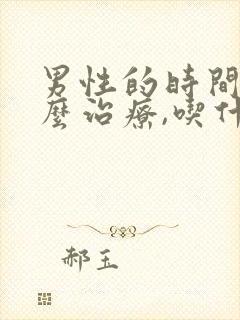 男性的時間
麼治療,喫什
郝玉